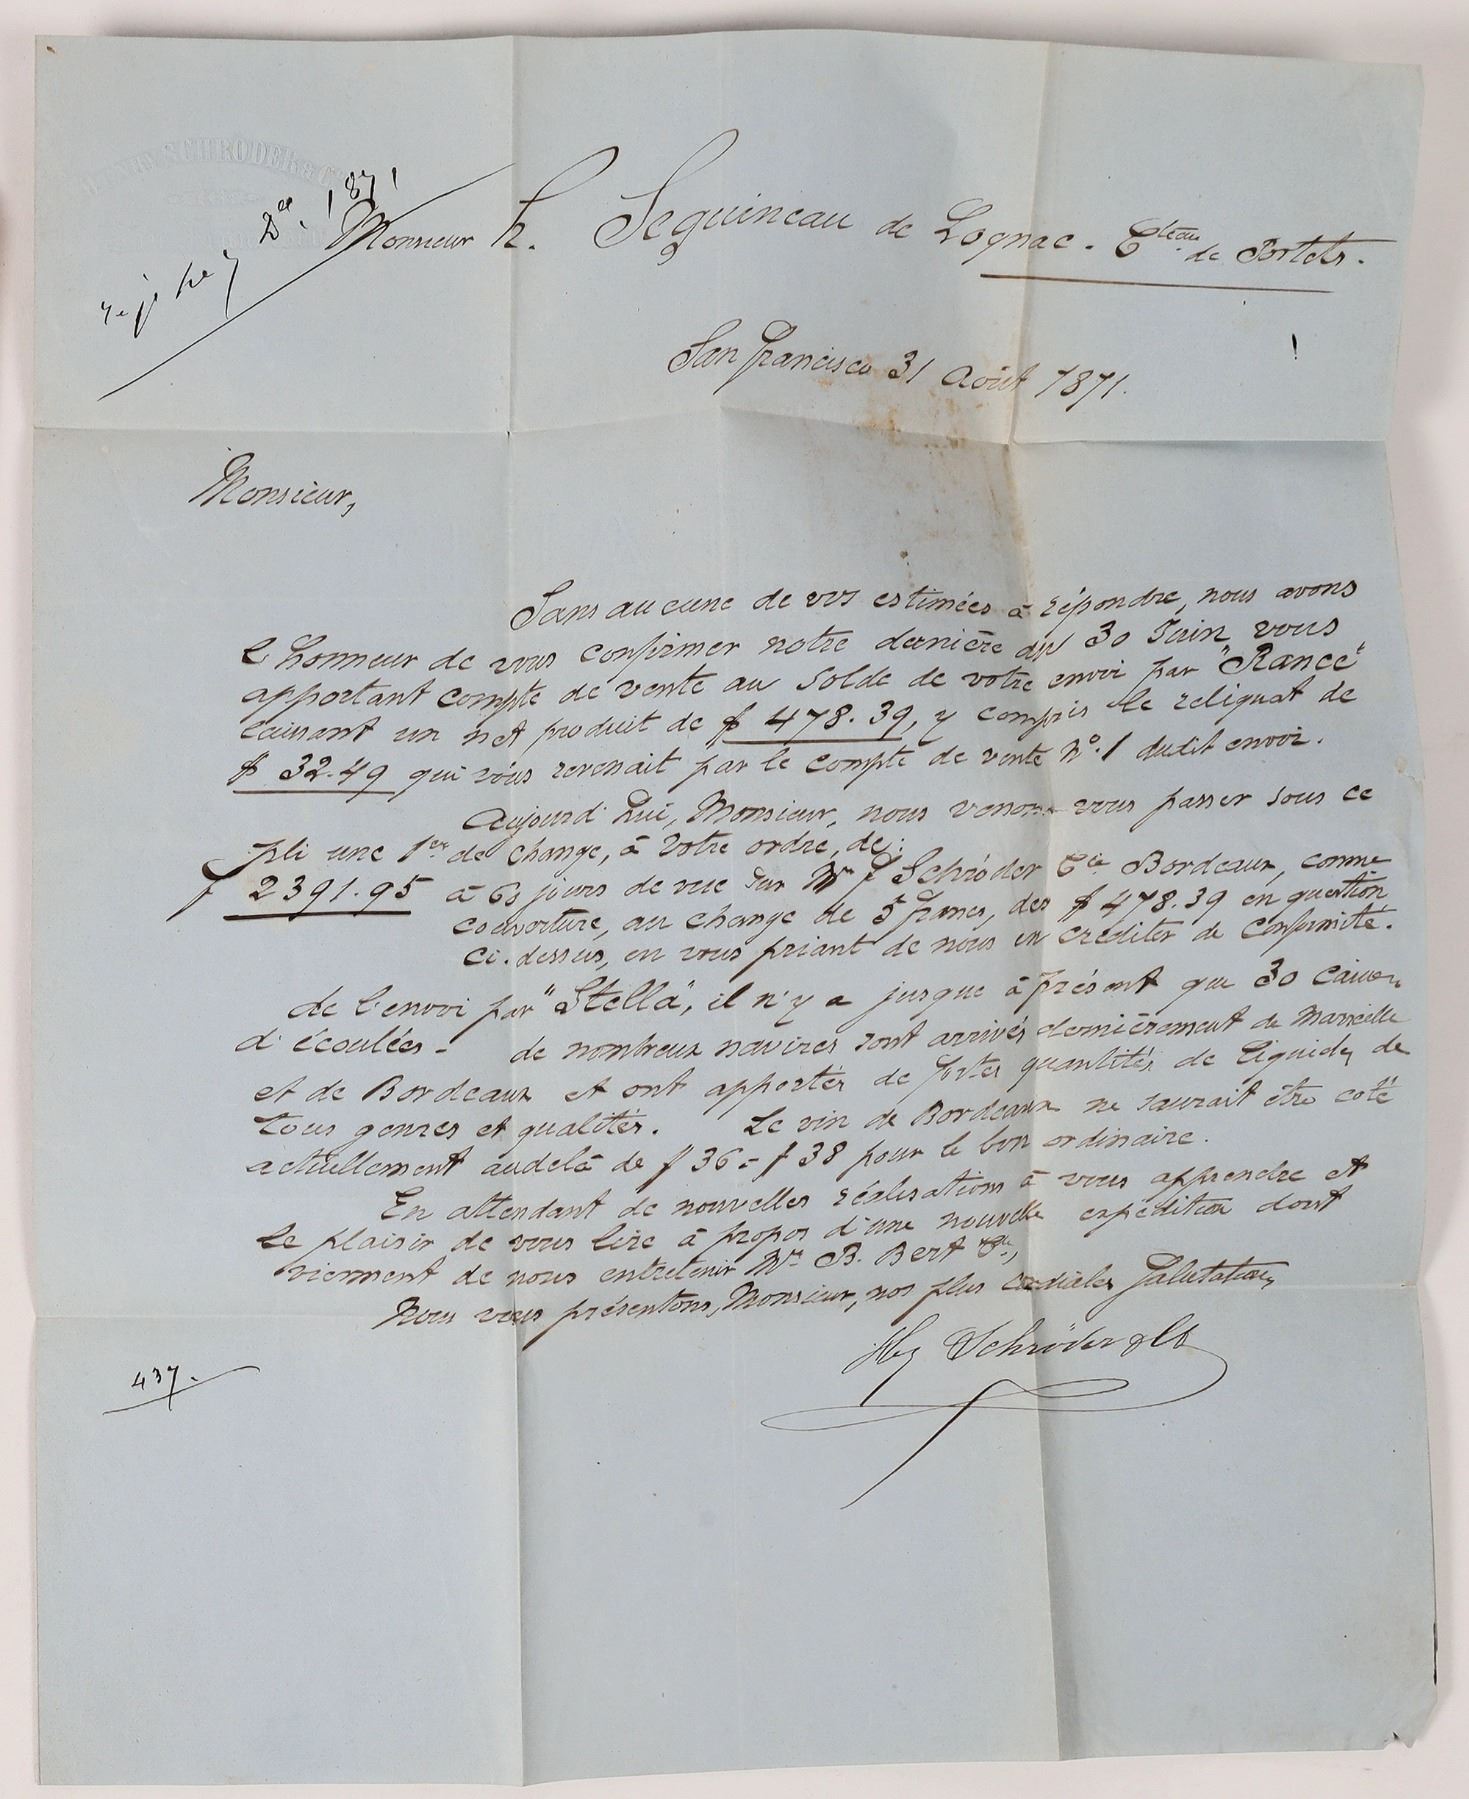 HENRY SCHRODER & Co
Dce 1871
Monsieur h. Seguineau de Lognac. Cteau de Portets.
San Francisco 31 Août 1871.
Monsieur,
Sans aucune de vos estimées à répondre, nous avons
l'honneur de vous confirmer notre dernière du 30 Juin vous
apportant compte de vente au solde de votre envoi par "Rance"
laissant un net produit de $ 478.39, y compris le reliquat de
$ 32.49 qui vous revenait par le compte de vente No. 1 dudit envoi.
Aujourd'hui, Monsieur, nous venons vous passer sous ce
pli une 1ere de change, à votre ordre, de:
f 2391.95 à 60 jours de vue sur Mr f Schröder Cie Bordeaux, comme
couverture, au change de 5 francs, des $ 478.39 en question
ci-dessus, en vous priant de nous en créditer de conformité.
de l'envoi par "Stella", il n'y a jusque à présent que 30 caisses
d'écoulées - de nombreux navires sont arrivés dernièrement de Marseille
et de Bordeaux et ont apportés de fortes quantités de liquides de
tous genres et qualités. Le vin de Bordeaux ne saurait être coté
actuellement audelà de $ 36 - $ 38 pour le bon ordinaire.
En attendant de nouvelles réalisations à vous apprendre et
le plaisir de vous lire à propos d'une nouvelle expédition dont
viennent de nous entretenir Mrs B. Bert Cie,
Nous vous présentons, Monsieur, nos plus cordiales Salutations
Hy Schröder & Co
437.